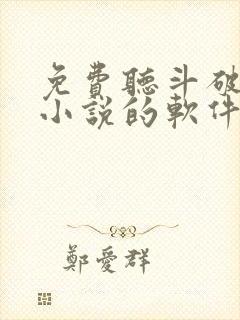 免費聽斗破
小說的軟件
鄭愛群